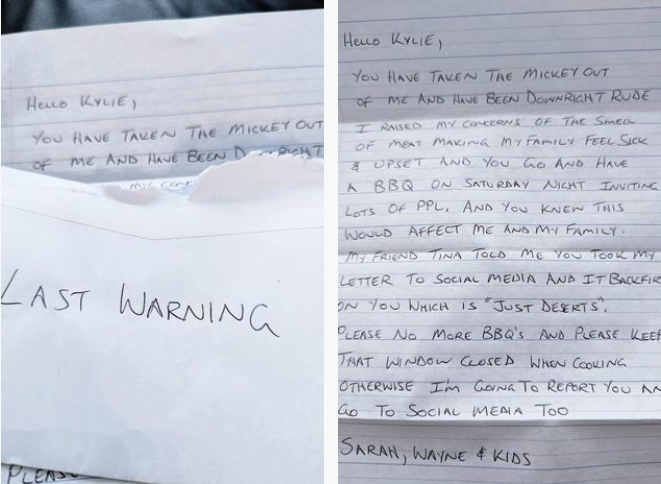 Hello Kylie,
You have taken the mickey out
of me and have been downright
mic conc
LAST WARNING
Please
Hello Kylie,
You have taken the mickey out
of me and have been downright rude
I raised my concerns of the smell
of meat making my family feel sick
& upset and you go and have
a BBQ on Saturday night inviting
lots of ppl, and you knew this
would affect me and my family.
My friend Tina told me you took my
letter to social media and it backfir
on you which is "just deserts".
Please no more BBQ's and please keep
that window closed when cooking
otherwise I'm going to report you an
go to social media too
Sarah, Wayne & kids